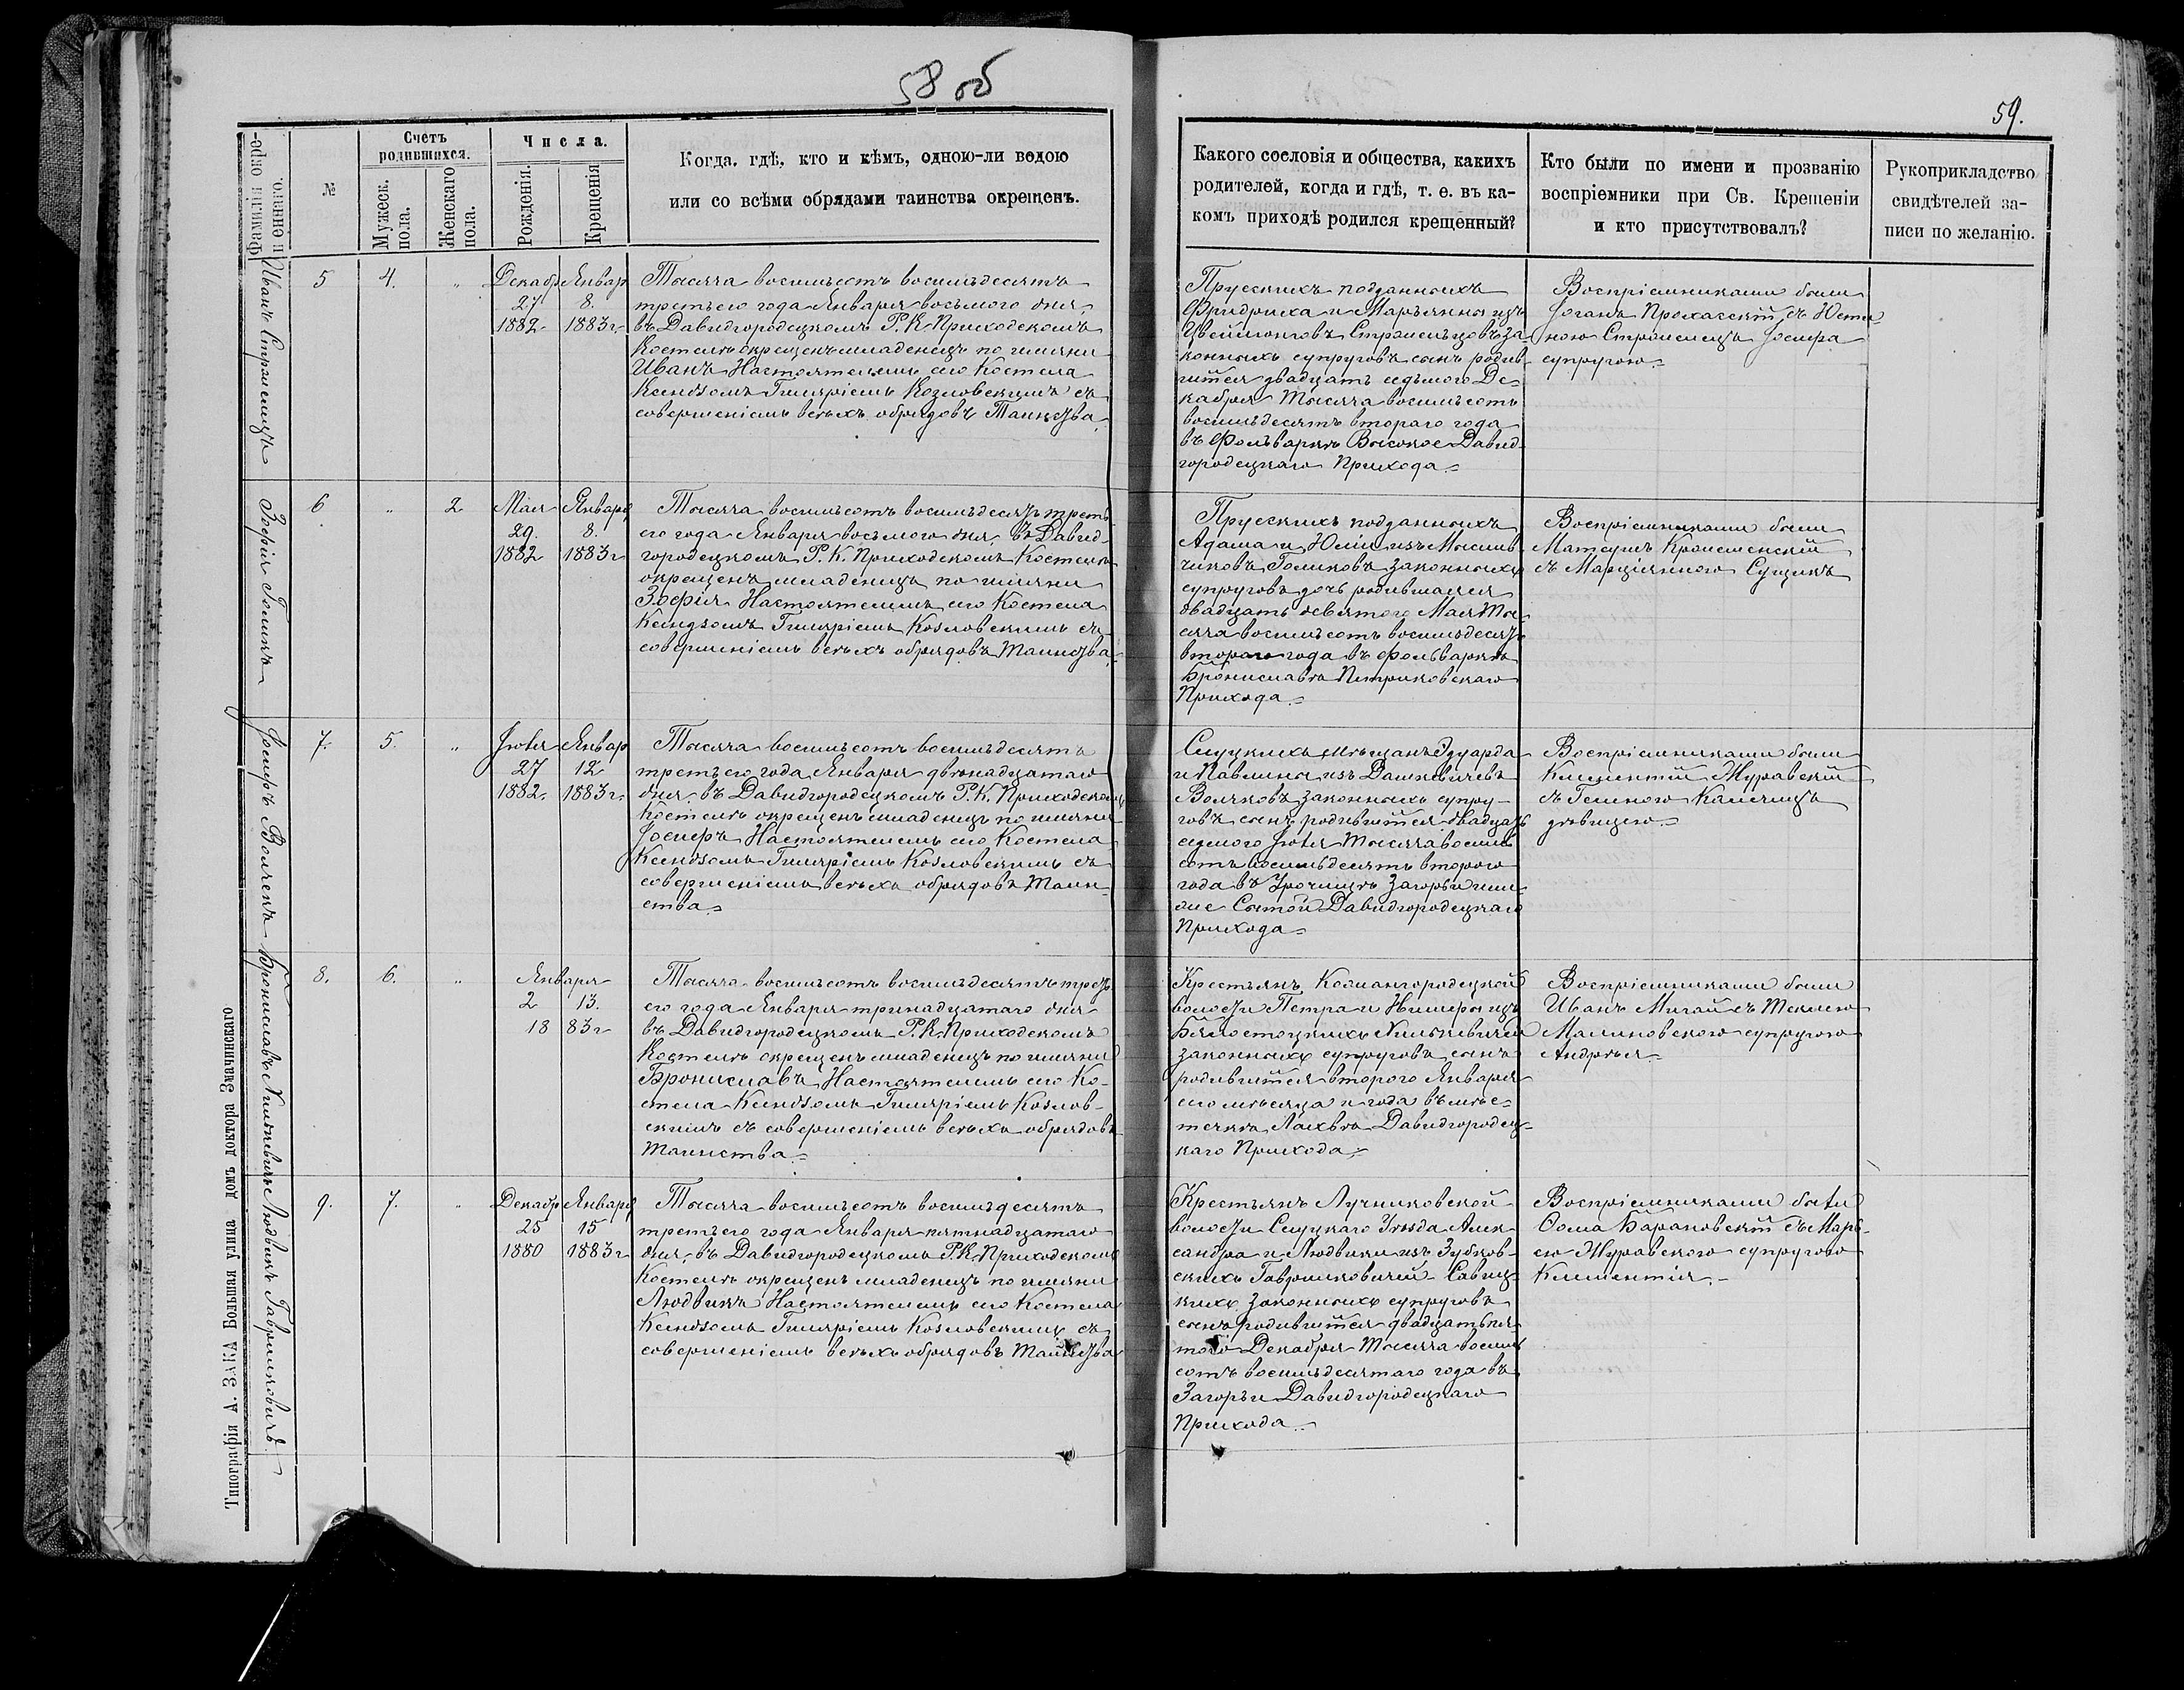 58 об
59.
Фамилія окре-
щеннаго.
№
Счетъ
родившихся.
Мужеск.
пола.
Женскаго
пола.
Числа.
Рожденія.
Крещенія
Когда, гдѣ, кто и кѣмъ, одною-ли водою
или со всѣми обрядами таинства окрещенъ.
Какого сословія и общества, какихъ
родителей, когда и гдѣ, т. е. въ ка-
комъ приходѣ родился крещенный?
Кто были по имени и прозванію
воспріемники при Св. Крещеніи
и кто присутствовалъ?
Рукоприкладство
свидѣтелей за-
писи по желанію.
Иванъ Стромецъ
5
4.
"
Декабр
27
1882
Январ
8
1883 г.
Тысяча восемьсотъ восемьдесятъ
третьего года Января восьмого дня,
въ Давидгородецкомъ Р. К. Приходскомъ
Костелѣ окрещенъ младенецъ по имяни
Иванъ Настоятелемъ сего Костела
Ксендзомъ Гиляріемъ Козловскимъ съ
совершеніемъ всѣхъ обрядовъ Таинства.
Прусскихъ подданныхъ
Фридриха и Марьянны изъ
законныхъ супруговъ сынъ родив-
шійся двадцать седьмого Де-
кабря Тысяча восемьсотъ
восемьдесятъ втораго года
въ Фольваркѣ Высокое Давид-
городецкаго Прихода.
Воспріемниками были
Іоганъ съ Юсти-
ною Іосифа
супругою.
Зофія Голикъ
6
"
2
Мая
29.
1882
Январ
8.
1883 г
Тысяча восемьсотъ восемьдесятъ треть-
его года Января восьмого дня, въ Давид-
городецкомъ Р. К. Приходскомъ Костелѣ
окрещенъ младенецъ по имяни
Зофія Настоятелемъ сего Костела
Ксендзомъ Гиляріемъ Козловскимъ съ
совершеніемъ всѣхъ обрядовъ Таинства.
Прусскихъ подданныхъ
Адама и Юліи изъ
Голиковъ законныхъ
супруговъ дочь родившаяся
двадцать девятого Мая Ты-
сяча восемьсотъ восемьдесятъ
втораго года въ Фольваркѣ
Брониславѣ Петриковскаго
Прихода.
Воспріемниками были
Матеушъ
съ Марціянною Сущикъ
Іосифъ Волчекъ
7.
5.
"
Іюля
27
1882.
Январ
12
1883 г.
Тысяча восемьсотъ восемьдесятъ
третьего года Января двѣнадцатаго
дня, въ Давидгородецкомъ Р. К. Приходскомъ
Костелѣ окрещенъ младенецъ по имяни
Іосифъ Настоятелемъ сего Костела
Ксендзомъ Гиляріемъ Козловскимъ съ
совершеніемъ всѣхъ обрядовъ Таин-
ства.
Слуцкихъ мѣщанъ Эдуарда
и Павлины изъ Дашкевичевъ
Волчковъ законныхъ супру-
говъ сынъ родившійся двадцать
седмого Іюля Тысяча восемь
сотъ восемьдесятъ второго
года въ Урочищѣ Загорьи
Давидгородецкаго
Прихода.
Воспріемниками были
Климентій Журавскій
съ Геленою
дѣвицею.
Брониславъ Хилькевичъ
8.
6.
"
Января
2 13.
18 83 г
Тысяча восемьсотъ восемьдесятъ треть-
его года Января тринадцатаго дня
въ Давидгородецкомъ Р. К. Приходскомъ
Костелѣ окрещенъ младенецъ по имяни
Брониславъ Настоятелемъ сего Ко-
стела Ксендзомъ Гиляріемъ Козлов-
скимъ съ совершеніемъ всѣхъ обрядовъ
Таинства.
Крестьянъ Кожангородецкой
волости Петра и изъ
Бялостоцкихъ Хилькевичей
законныхъ супруговъ сынъ
родившійся второго Января
сего мѣсяца и года въ мѣс-
течкѣ Лахвѣ Давидгородец-
каго Прихода.
Воспріемниками были
Иванъ Мигай съ Теклею
Малиновскою супругою
Андрея.
Людвикъ Гавриловичъ
9.
7.
"
Декабр
25
1880
Январ
15
1883 г
Тысяча восемьсотъ восемьдесятъ
третьего года Января пятнадцатаго
дня, въ Давидгородецкомъ Р. К. Приходскомъ
Костелѣ окрещенъ младенецъ по имяни
Людвикъ Настоятелемъ сего Костела
Ксендзомъ Гиляріемъ Козловскимъ съ
совершеніемъ всѣхъ обрядовъ Таинства
Крестьянъ
волости Слуцкаго Уѣзда Алек-
сандра и Людвики изъ Зубков-
скихъ Савиц-
кихъ законныхъ супруговъ
сынъ родившійся двадцать пя-
того Декабря Тысяча восемь
сотъ восемьдесятаго года въ
Загорьи Давидгородецкаго
Прихода.
Воспріемниками были
Ѳома Барановскій съ Марь-
ею Журавскою супругою
Климентія.
Типографія А. ЗАКА Большая улица домъ доктора Значинскаго